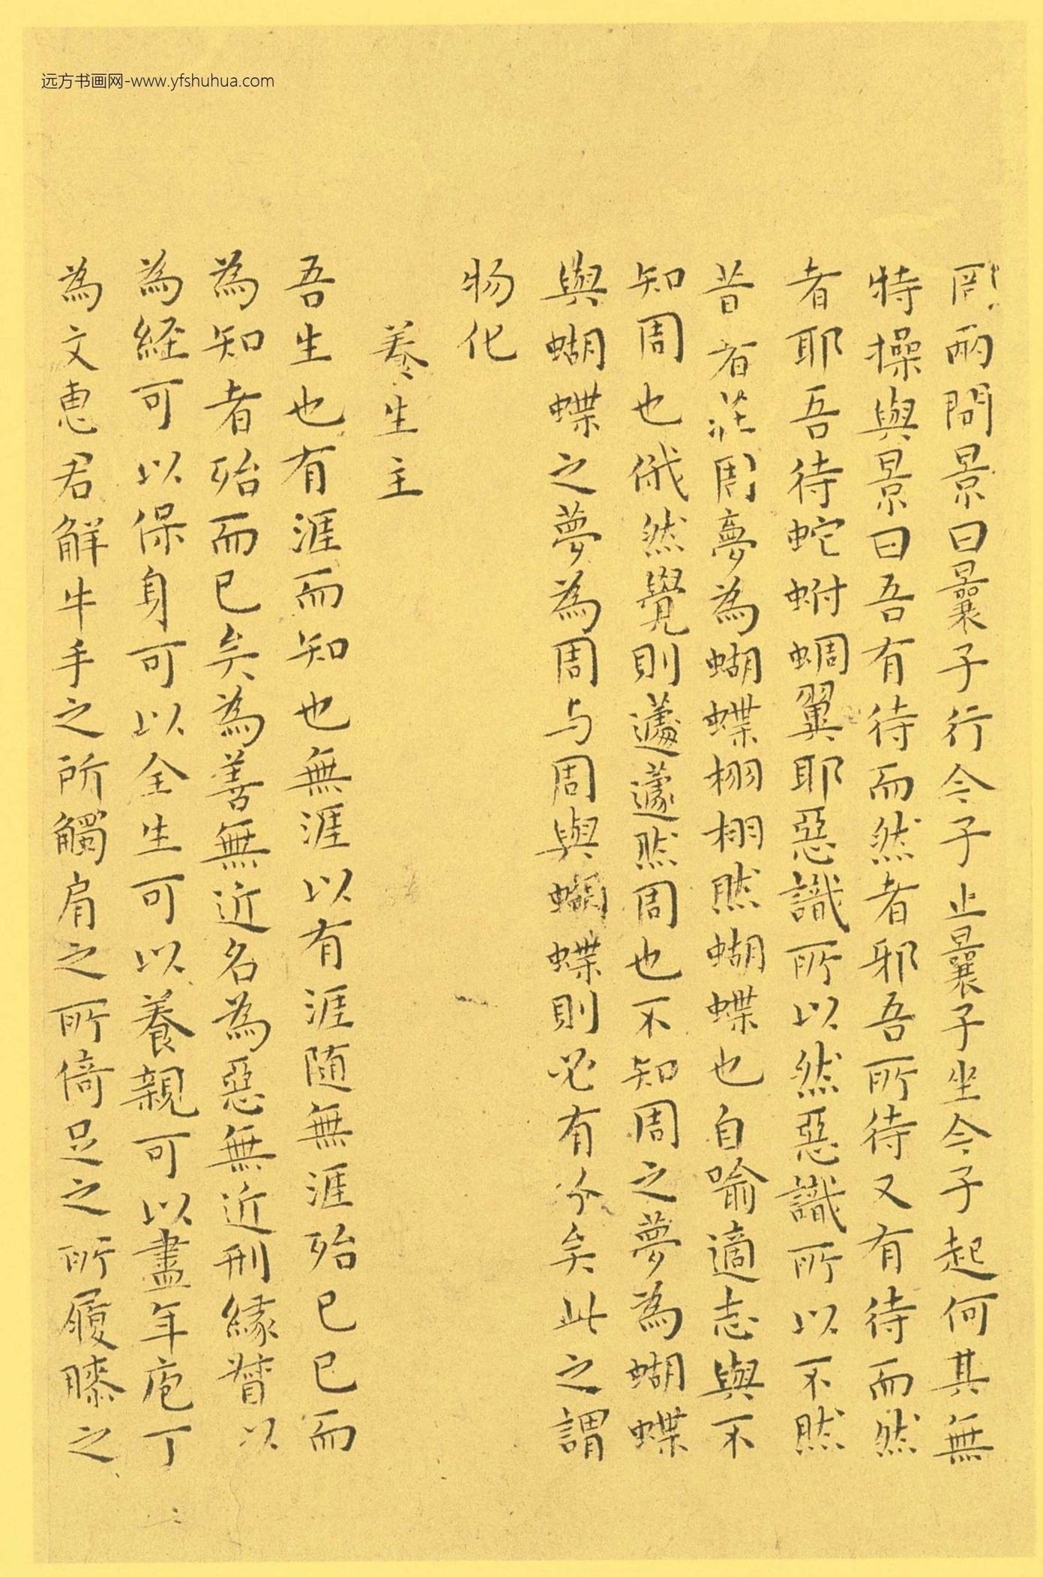 远方书画网-www.yfshuhua.com
罔兩問景曰曩子行今子止曩子坐今子起何其無
特操與景曰吾有待而然者邪吾所待又有待而然
者耶吾待蛇蚹蜩翼耶惡識所以然惡識所以不然
昔者莊周夢為蝴蝶栩栩然蝴蝶也自喻適志與不
知周也俄然覺則蘧蘧然周也不知周之夢為蝴蝶
與蝴蝶之夢為周与周與蝴蝶則必有分矣此之謂
物化
養生主
吾生也有涯而知也無涯以有涯随無涯殆已已而
為知者殆而已矣為善無近名為惡無近刑緣督以
為經可以保身可以全生可以養親可以盡年庖丁
為文惠君解牛手之所觸肩之所倚足之所履膝之